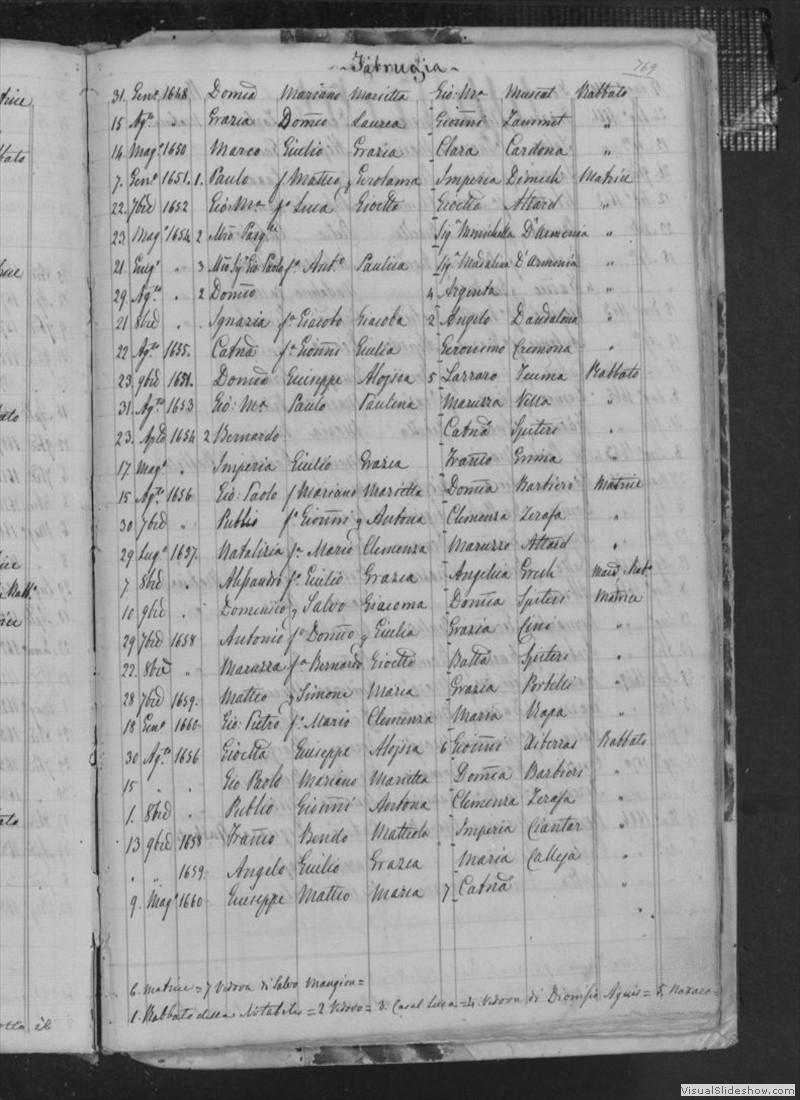 Fabrugia
769
31. Genº 1648 Domcã Mariano Marietta Gio: Mª Muscat Rabbato
15 Agto " Grazia Domcõ Laurea Gioñi Zammit "
14 Magº 1650 Marco Giulio Grazia Clara Cardona "
7. Genº 1651. 1. Paulo f Matteo, y Girolama Imperia Dimech Matrice
22. 7bre 1652 Gio: Mª fº Luca Gioetta Gioetta Attard "
23 Magº 1654 2 Mro Pasqle Sigª Monichella D'Armenia "
21. Giugº " 3 Mro Sigr Gio Paolo fº Antº Paulica Sigª Madalica D'Armenia "
29. Agto " 2 Domcõ 4 Argenta "
21 8bre " Ignazia fª Giacobo Giacoba 2 Angelo Dardalona "
22 Agto 1655. Catñã fª Gioñi Giulia Geronimo Cremona "
23. 9bre 1651. Domcã Giuseppe Aloisia 5 Lazzaro Teuma Rabbato
31. Agto 1653 Gio: Mª Paulo Paulina Maruzza Vella "
23. Aple 1654 2 Bernardo Catñã Spiteri "
17. Magº " Imperia Giulio Grazia Franco Ennia "
15 Agto 1656. Gio: Paolo f Mariano Marietta Domcã Barbieri Matrice
30 7bre " Publio fº Gioñi y Antona Clemenza Zerafa "
29 Lugº 1657. Natalizia fª Mario Clemenza Maruzzo Attard "
7. 8bre " Alessandro fº Giulio Grazia Angelica Grech Mard. Rabº
10 9bre " Domenico y Salvo Giacoma Domcã Spiteri Matrice
29 7bre 1658 Antonio fº Domcõ y Giulia Grazia Cini "
22. 8bre " Maruzza fª Bernardo Gioetta Batta Spiteri "
28 7bre 1659. Matteo y Simone Maria Grazia Portelli "
18 Genº 1660. Gio: Pietro fº Mario Clemenza Maria Xara "
30 Agto 1656 Gioetta Giuseppe Aloisia 6 Gioñi Xiberras Rabbato
15 " Gio Paolo Mariano Marietta Domcã Barbieri "
1. 8bre " Publio Gioñi Antona Clemenza Zerafa "
13 9bre 1658 Franco Bendo Mattiola Imperia Ciantar "
" " 1659. Angelo Giulio Grazia Maria Calleja "
9. Magº 1660 Giuseppe Matteo Maria 7 Catñã "
6. Matrice = 7 Vedova di Salvo Mangion =
1. Rabbato della Notabile = 2. Vedovo = 3. Casal Luca = 4. Vedova di Dionisio Agius = 5. Naxaro =
VisualSlideshow.com